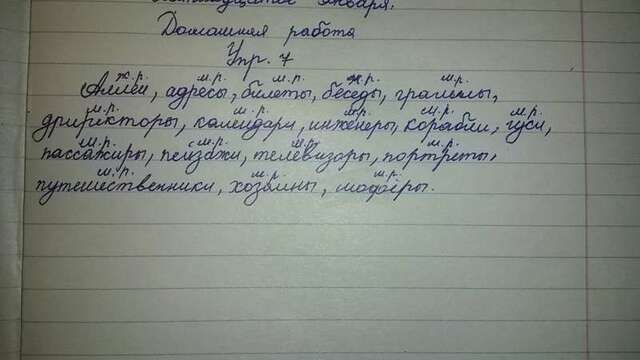 января.
Домашняя работа
Упр. 7
ж.р. м.р. м.р. ж.р. м.р.
Аллеи, адресы, билеты, беседы, граммы,
м.р. м.р. м.р. м.р. м.р.
дририкторы, календари, инженеры, корабли, гуси,
м.р. м.р. м.р. м.р.
пассажиры, пейзажи, телевизоры, портреты,
м.р. м.р. м.р.
путешественники, хозяины,